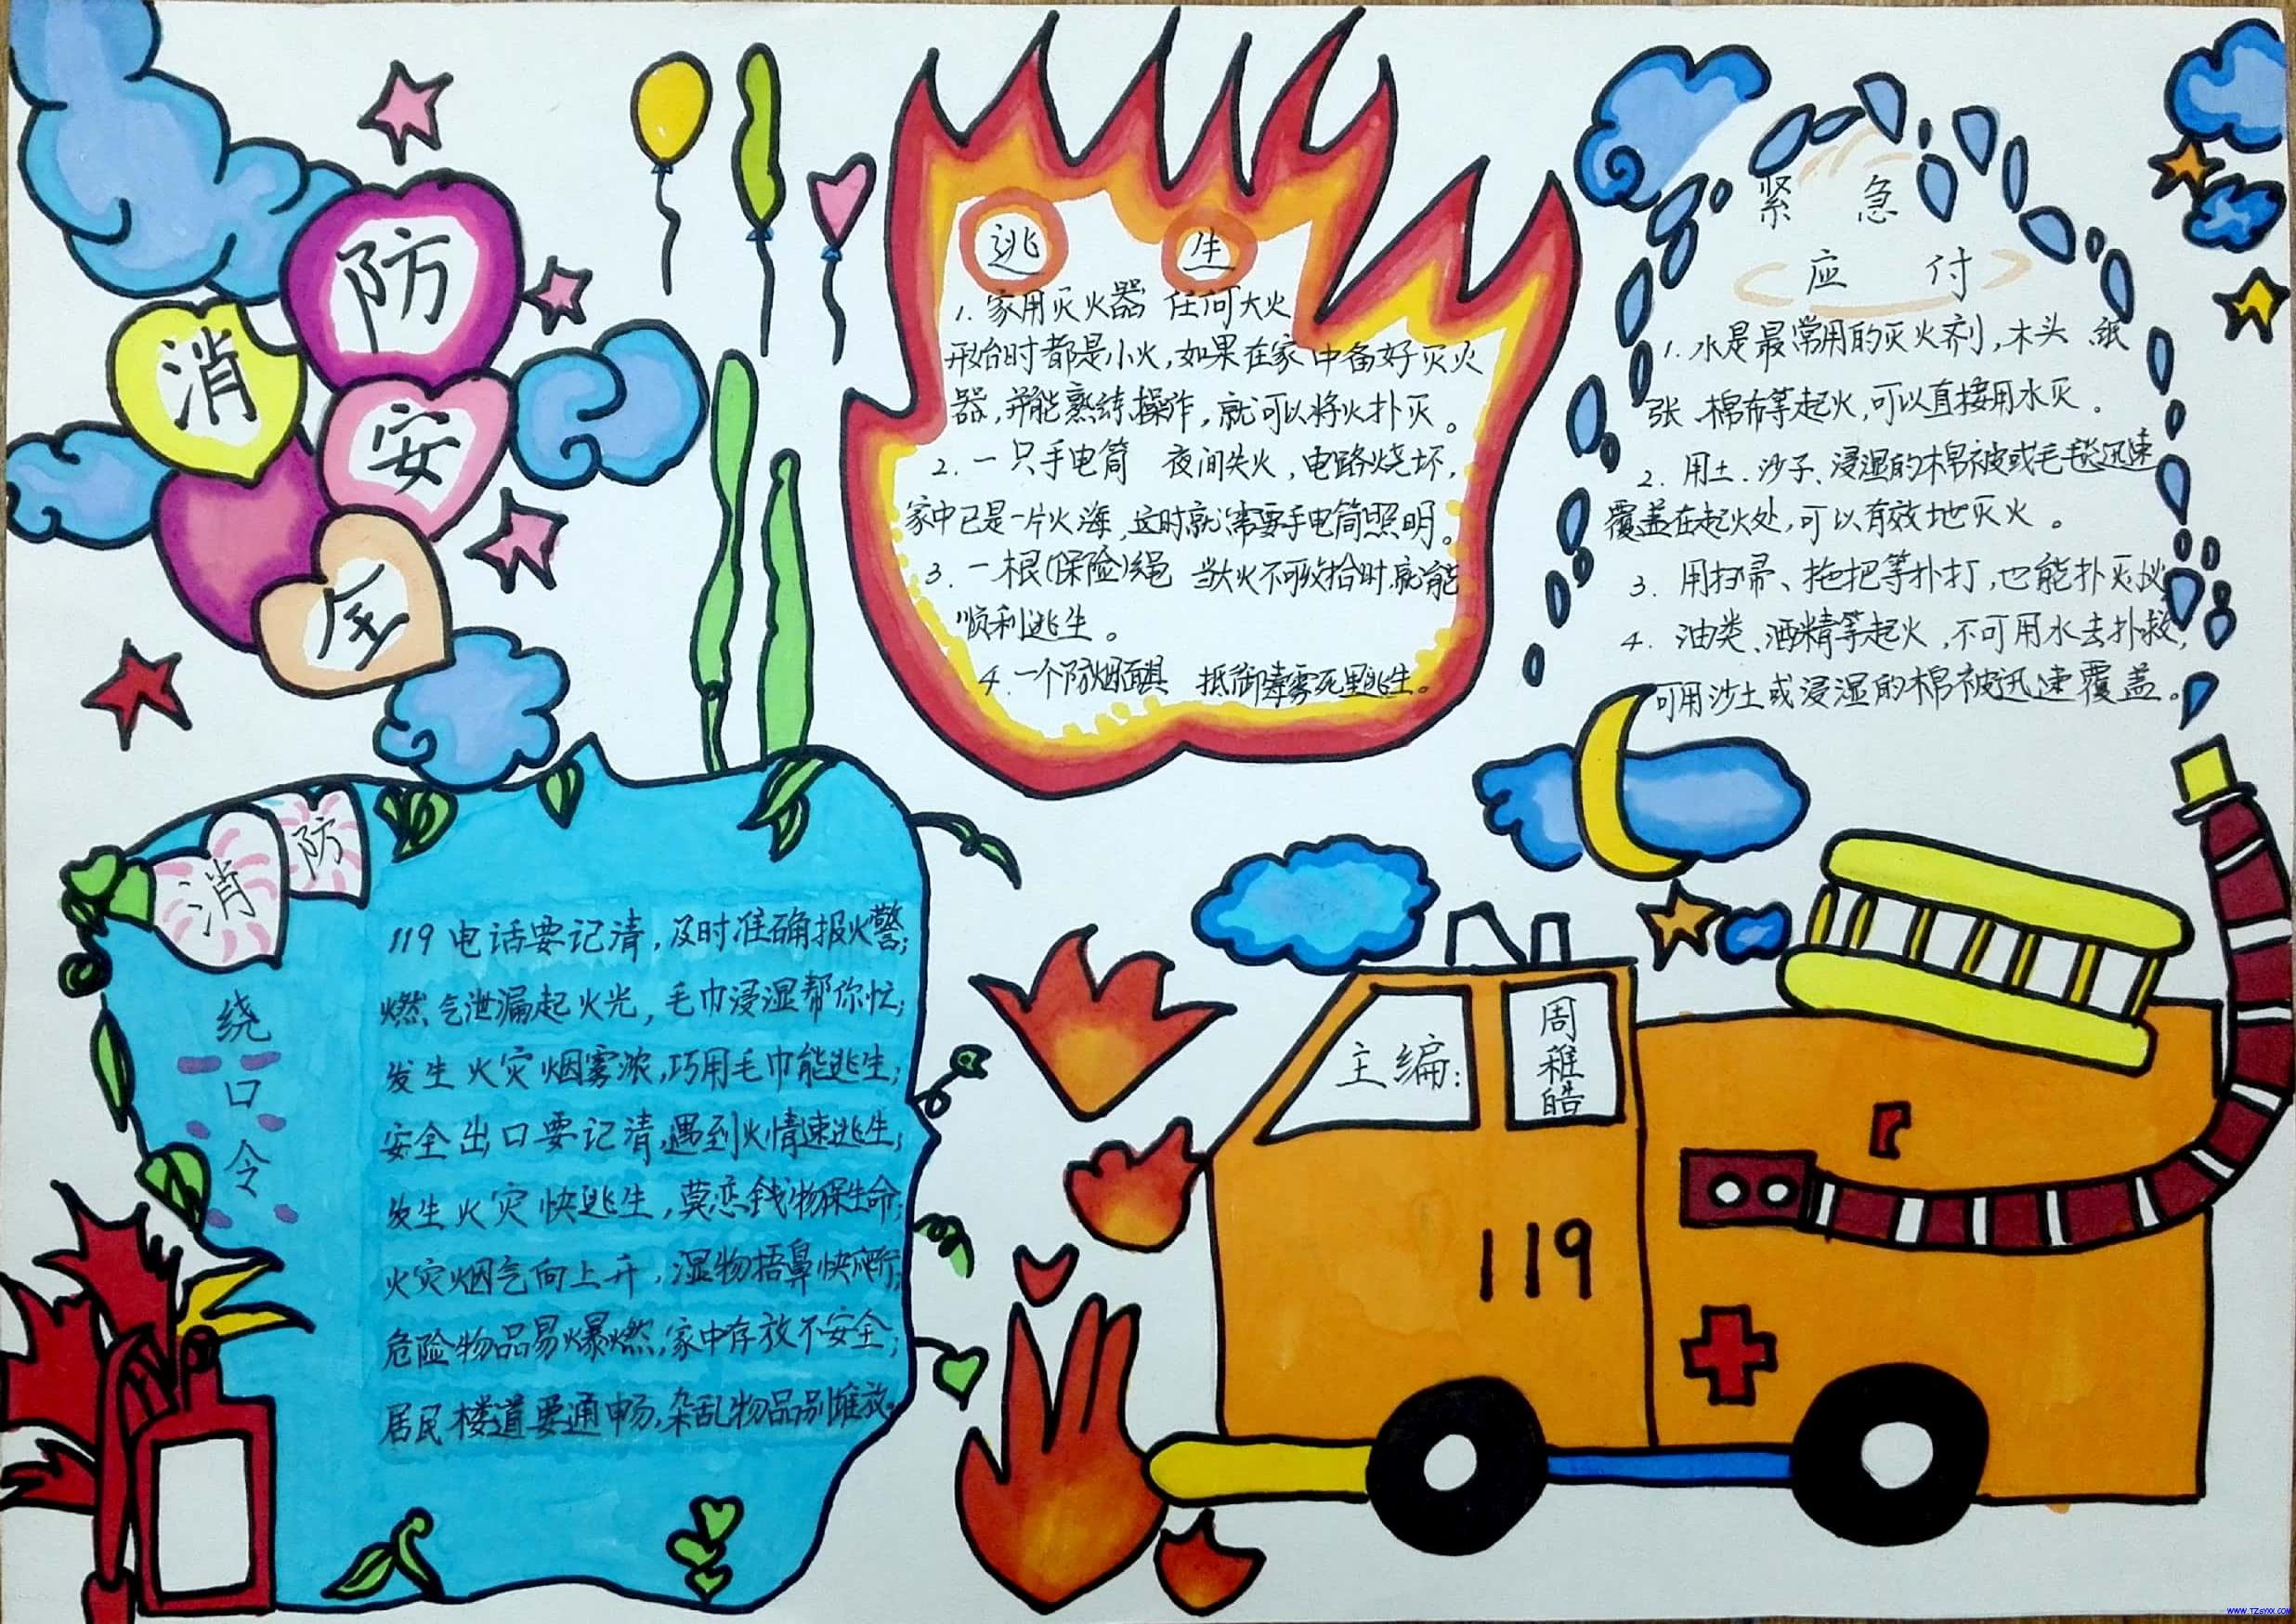 消防安全
逃生
1. 家用灭火器 任何大火
开始时都是小火，如果在家中备好灭火
器，并能熟练操作，就可以将火扑灭。
2. 一只手电筒 夜间失火，电路烧坏，
家中已是一片火海，这时就需要手电筒照明。
3. 一根(保险)绳 当大火不可收拾时，就能
顺利逃生。
4. 一个防烟面具 抵御毒雾死里逃生。
紧急
应付
1. 水是最常用的灭火剂，木头、纸
张、棉布等起火，可以直接用水灭。
2. 用土、沙子、浸湿的棉被或毛毯迅速
覆盖在起火处，可以有效地灭火。
3. 用扫帚、拖把等扑打，也能扑灭
4. 油类、酒精等起火，不可用水去扑救，
可用沙土或浸湿的棉被迅速覆盖。
消防
绕口令
119电话要记清，及时准确报火警；
燃气泄漏起火光，毛巾浸湿帮你忙；
发生火灾烟雾浓，巧用毛巾能逃生；
安全出口要记清，遇到火情速逃生；
发生火灾快逃生，莫恋钱物保生命；
火灾烟气向上升，湿物捂鼻快爬行；
危险物品易爆燃，家中存放不安全；
居民楼道要通畅，杂乱物品别堆放。
主编：
周稚皓
119
WWW.TZSYXX.COM